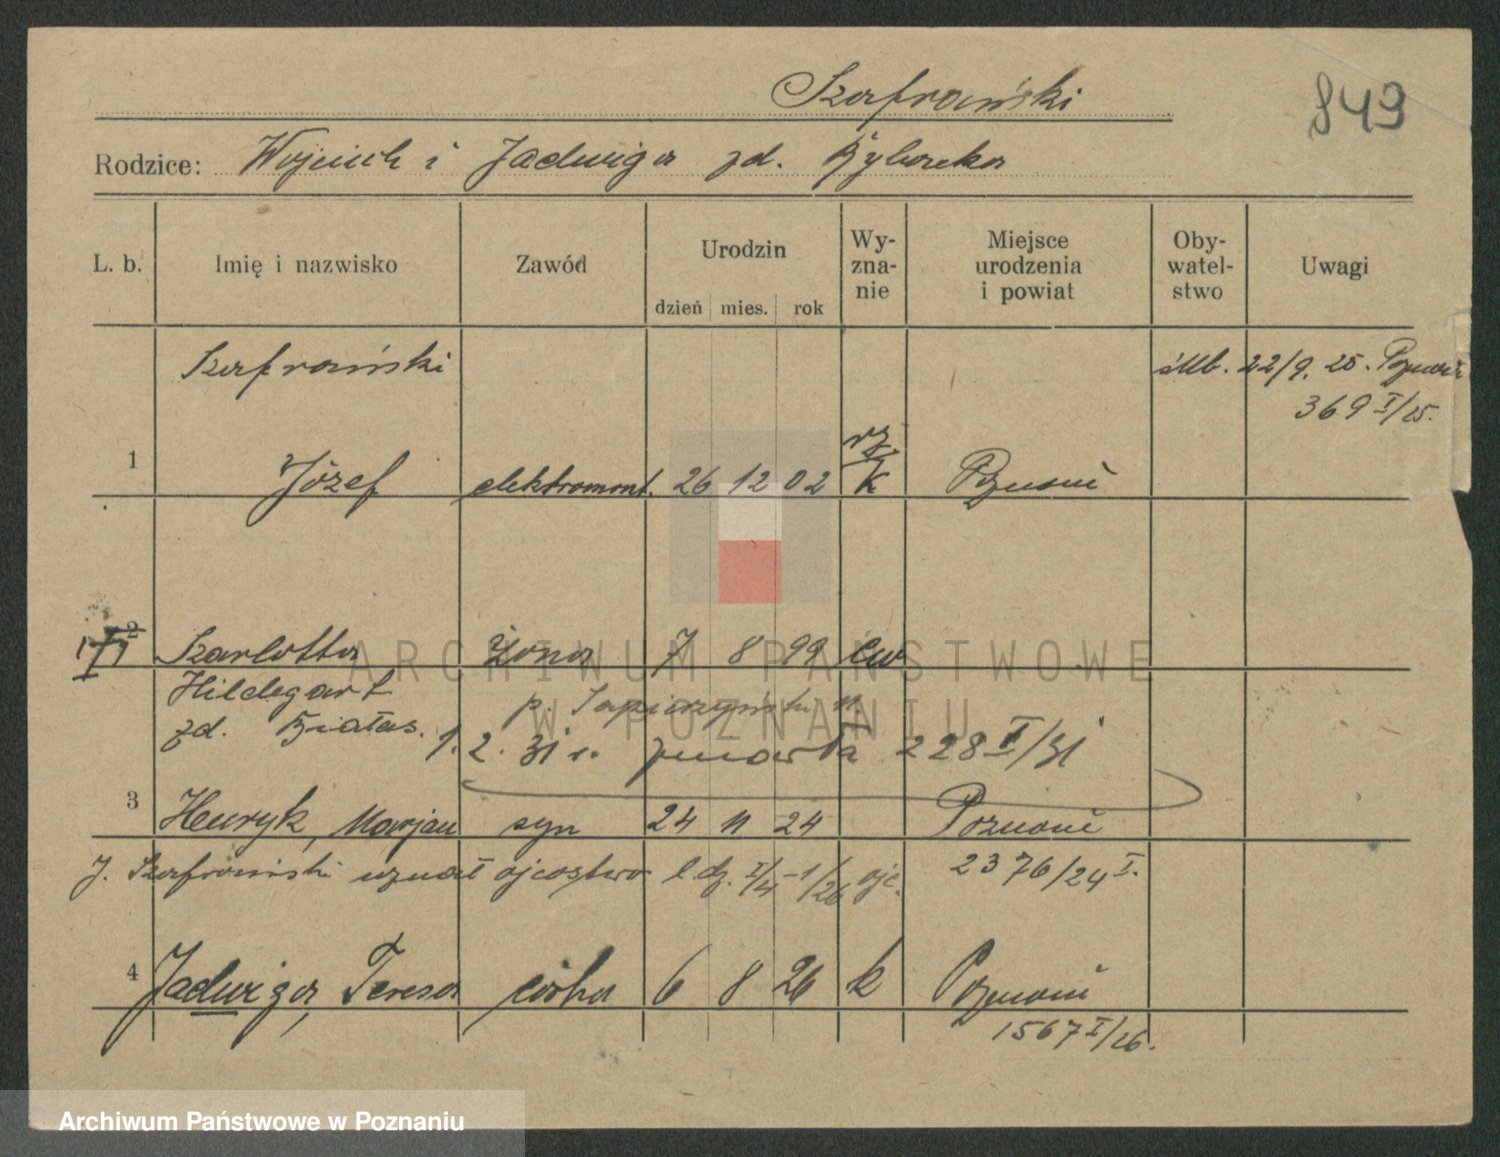 Szafrański
849
Rodzice: Wojciech i Jadwiga zd. Rybacka
L. b. Imię i nazwisko Zawód Urodzin dzień mies. rok Wy-zna-nie Miejsce urodzenia i powiat Oby-watel-stwo Uwagi
Szafrański ślub. 22/9. 25. Poznań
369 I/25.
1 Józef elektromont. 26 12 02 rz. k Poznań
2 Szarlotta żona 7 8 99 ew
Hildegart
zd. Białas. 1. 2. 31 r. zmarła 228 I/31
3 Henryk, Marjan syn 24 11 24 Poznań
J. Szafrański uznał ojcostwo l. dz. I/4-1/26 2376/24 I.
4 Jadwiga, Teresa córka 6 8 26 k Poznań
1567 I/26.
ARCHIWUM PAŃSTWOWE
W POZNANIU
Archiwum Państwowe w Poznaniu